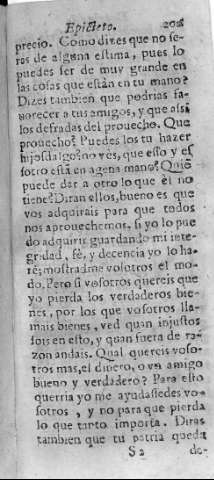 Epicteto.
precio. Como dizes que no se-
ras de alguna estima, pues lo
puedes ser de muy grande en
las cosas que están en tu mano?
Dizes tambien que podrias fa-
uorecer a tus amigos, y que assi
los defradas del prouecho. Que
prouecho? Puedes los tu hazer
hijosdalgo? no vès, que esso y es
sotro està en agena mano? Quiẽ
puede dar a otro lo que èl no
tiene? Diran ellos, bueno es que
vos adquirais para que todos
nos aprouechemos, si yo lo pue
do adquirir guardando mi inte-
gridad, fè, y decencia yo lo ha-
rè; mostradme vosotros el mo-
do. Pero si vosotros quereis que
yo pierda los verdaderos bie-
nes, por los que vosotros lla-
mais bienes, ved quan injustos
sois en esto, y quan fuera de ra-
zon andais. Qual quereis voso-
tros mas, el dinero, o vn amigo
bueno y verdadero? Para esto
querria yo me ayudassedes vo-
sotros, y no para que pierda
lo que tanto importa. Diras
tambien que tu patria queda
S 2 de-